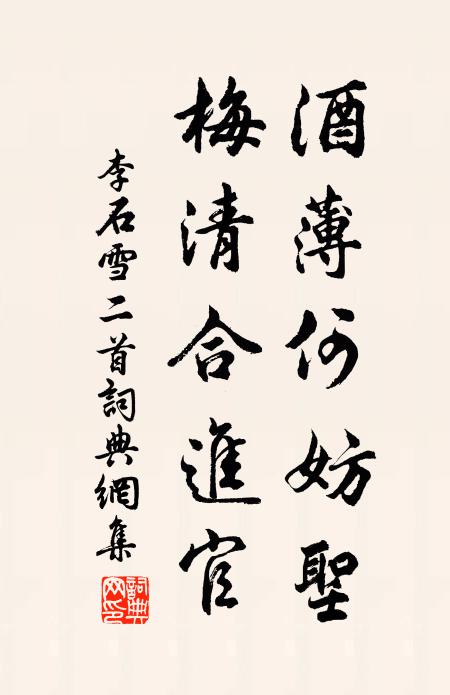 酒薄何妨聖
梅清合進官
李石雪二首詞典網集
詞典网印